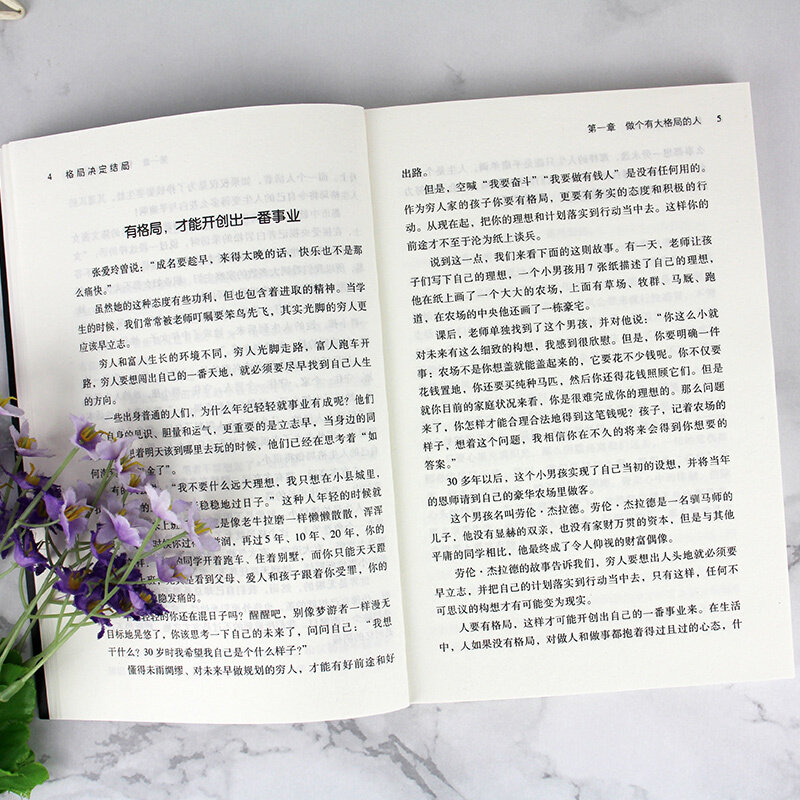 4 格局决定结局
有格局，才能开创出一番事业
张爱玲曾说：“成名要趁早，来得太晚的话，快乐也不是那
么痛快。”
虽然她的这种态度有些功利，但也包含着进取的精神。当学
生的时候，我们常常被老师叮嘱要笨鸟先飞，其实光脚的穷人更
应该早立志。
穷人和富人生长的环境不同，穷人光脚走路，富人跑车开
路，穷人要想闯出自己的一番天地，就必须要尽早找到自己人生
的方向。
一些出身普通的人们，为什么年纪轻轻就事业有成呢？他们
自身的见识、胆量和运气，更重要的是立志早，当身边的同
想着明天该到哪里去玩的时候，他们已经在思考着“如
何淘
金了”。
有的
“我不要什么远大理想，我只想在小县城里，
稳稳地过日子。”这种人年轻的时候就
上班
是像老牛拉磨一样懒懒散散、浑浑
时候你过
滋润，再过5年、10年、20年，你的
同学开着跑车、住着别墅，而你只能天天蹬
上班，
是看到父母、爱人和孩子跟着你受罪，你的
隐隐发痛的。
轻轻的你还在混日子吗？醒醒吧，别像梦游者一样漫无
目标地晃悠了，你该思考一下自己的未来了，问问自己：“我想
干什么？30岁时我希望我自己是个什么样子？”
懂得未雨绸缪、对未来早做规划的穷人，才能有好前途和好
第一章 做个有大格局的人 5
出路。
但是，空喊“我要奋斗”“我要做有钱人”是没有任何用的。
作为穷人家的孩子你要有格局，更要有务实的态度和积极的行
动。从现在起，把你的理想和计划落实到行动当中去。这样你的
前途才不至于沦为纸上谈兵。
说到这一点，我们来看下面的这则故事。有一天，老师让孩
子们写下自己的理想，一个小男孩用7张纸描述了自己的理想，
他在纸上画了一个大大的农场，上面有草场、牧群、马厩、跑
道，在农场的中央他还画了一栋豪宅。
课后，老师单独找到了这个男孩，并对他说：“你这么小就
对未来有这么细致的构想，我感到很欣慰。但是，你要明确一件
事：农场不是你想盖就能盖起来的，它要花不少钱呢。你不仅要
花钱置地，你还要买纯种马匹，然后你还得花钱照顾它们。但是
就你目前的家庭状况来看，你是很难完成你的理想的。那么问题
来了，你怎样才能合理合法地得到这笔钱呢？孩子，记着农场的
样子，想着这个问题，我相信你在不久的将来会得到你想要的
答案。”
30多年以后，这个小男孩实现了自己当初的设想，并将当年
的恩师请到自己的豪华农场里做客。
这个男孩名叫劳伦·杰拉德。劳伦·杰拉德是一名驯马师的
儿子，他没有显赫的双亲，也没有家财万贯的资本，但是与其他
平庸的同学相比，他最终成了令人仰视的财富偶像。
劳伦·杰拉德的故事告诉我们，穷人要想出人头地就必须要
早立志，并把自己的计划落实到行动当中去，只有这样，任何不
可思议的构想才有可能变为现实。
人要有格局，这样才可能开创出自己的一番事业来。在生活
中，人如果没有格局，对做人和做事都抱着得过且过的心态，什